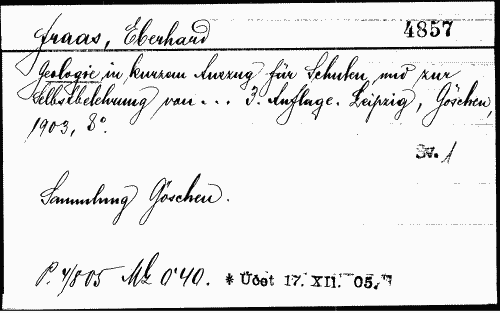 Fraas, Eberhard 4857
Geologie in kurzem Auszug für Schulen und zur
Selbstbelehrung von ... 3. Auflage. Leipzig, Göschen,
1903, 8°.
Sv. 1
Sammlung Göschen.
P. 4/805 Mk 0'40. * Účet 17. XII. 05.